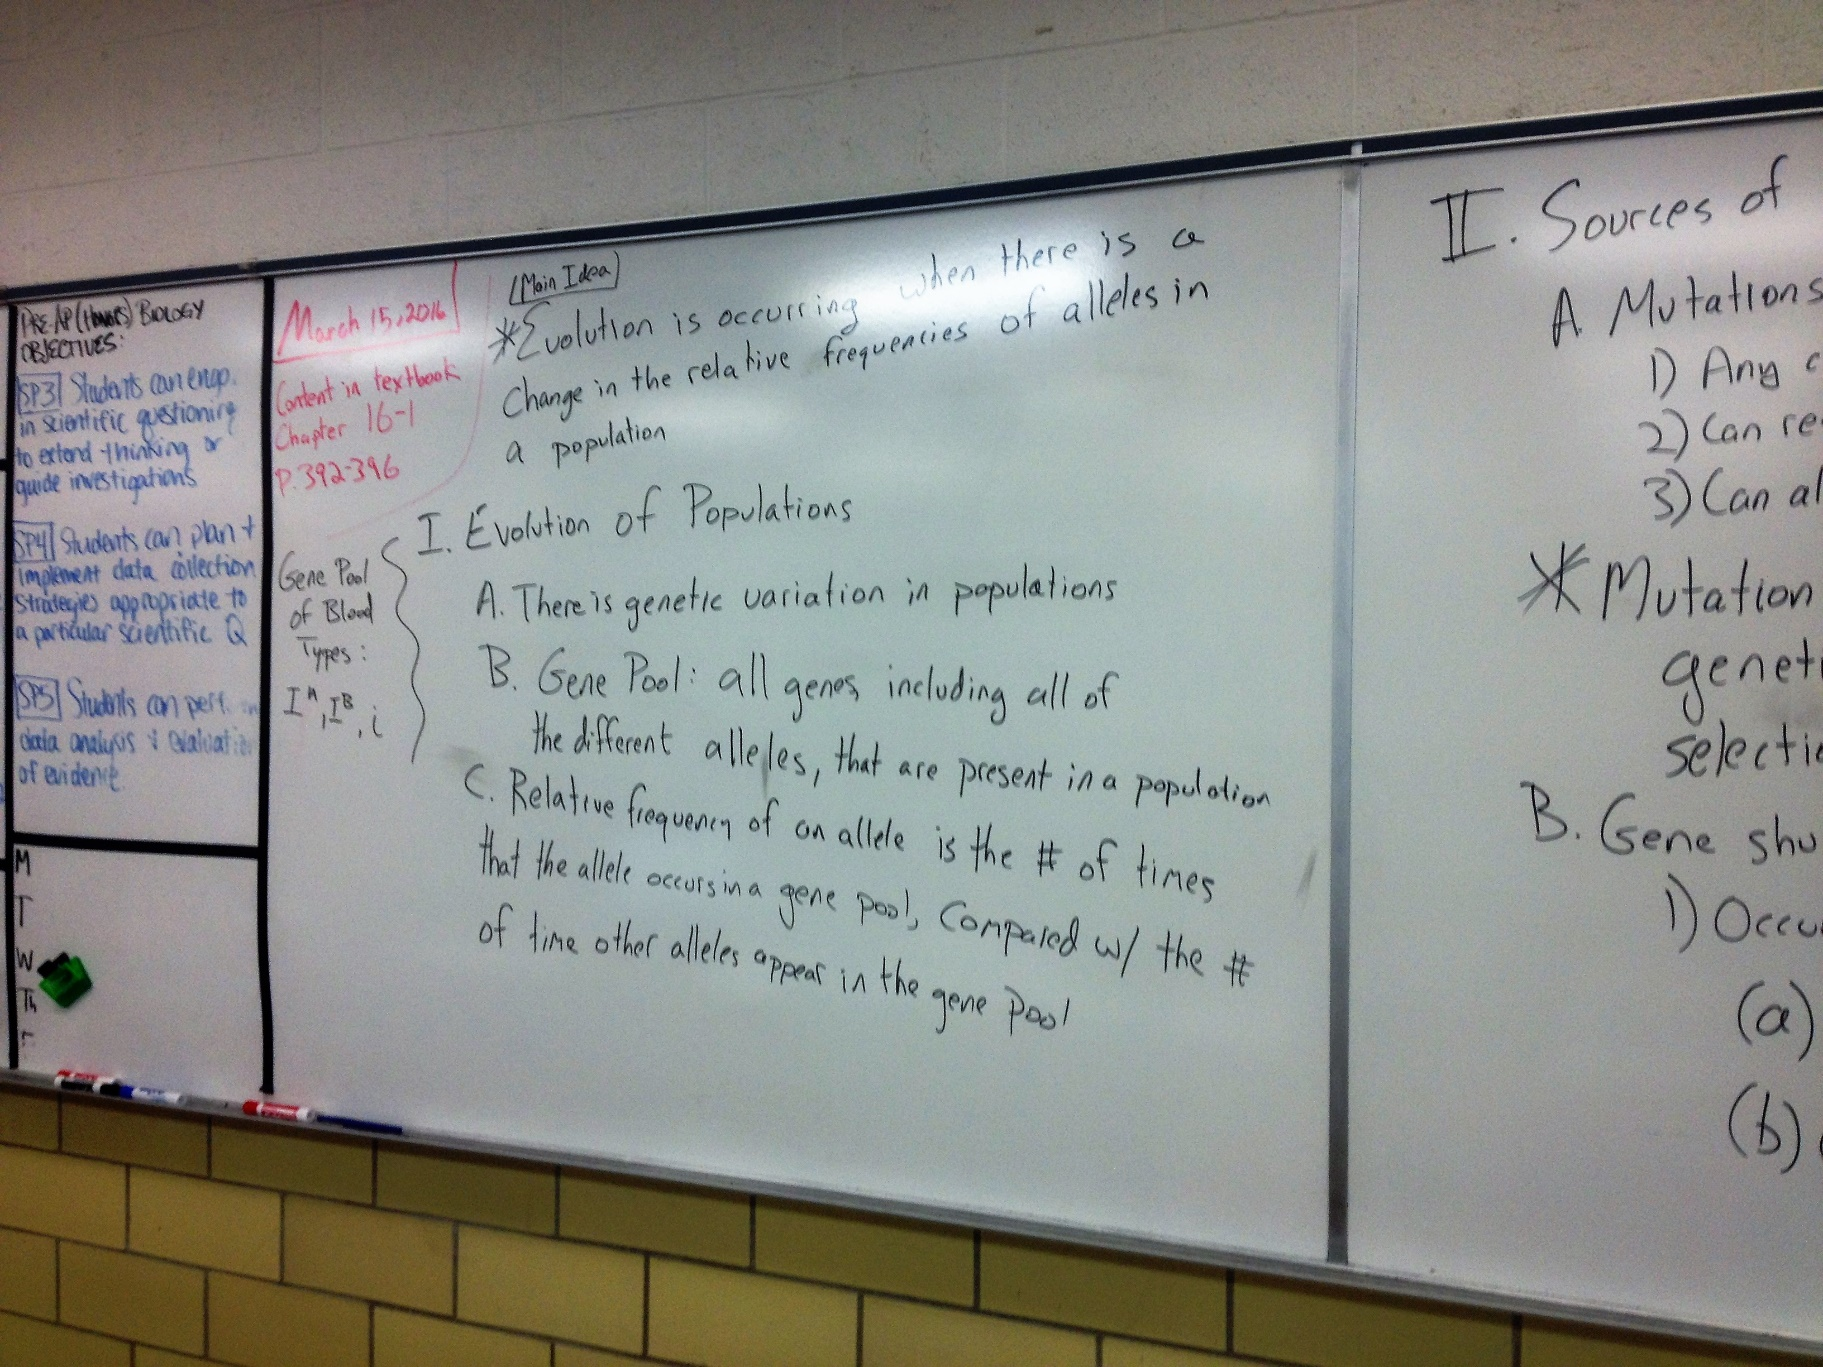 PRE-AP (Honors) BIOLOGY
OBJECTIVES:
SP3 Students can engag.
in scientific questioning
to extend thinking or
guide investigations
SP4 Students can plan +
implement data collection
strategies appropriate to
a particular scientific Q
SP5 Students can perf.
data analysis + evaluation
of evidence.
M
T
W
Th
March 15, 2016
Content in textbook
Chapter 16-1
P. 392-396
Gene Pool
of Blood
Types:
Iᴬ, Iᴮ, i
(Main Idea)
*Evolution is occurring when there is a
change in the relative frequencies of alleles in
a population
I. Evolution of Populations
A. There is genetic variation in populations
B. Gene Pool: all genes, including all of
the different alleles, that are present in a population
C. Relative frequency of an allele is the # of times
that the allele occurs in a gene pool, compared w/ the #
of time other alleles appear in the gene pool
II. Sources of
A. Mutations
1) Any c
2) Can re
3) Can al
* Mutation
genet
selectio
B. Gene shu
1) Occu
(a)
(b)